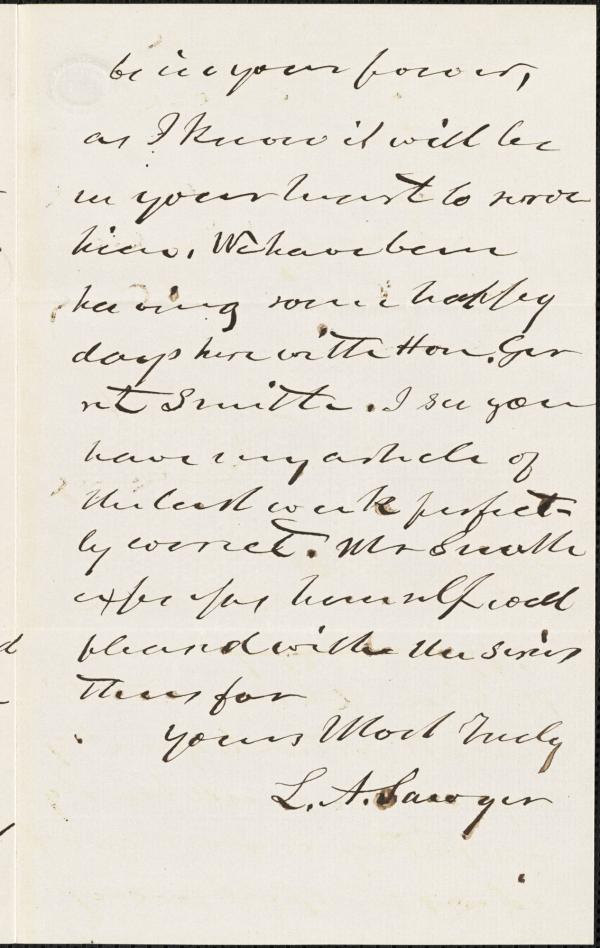 be in your power,
as I know it will be
in your heart to serve
him. We have been
having some happy
days here with Hon. Ger
rit Smith. I see you
have my article of
the last week perfect-
ly correct. Mr Smith
expresses himself well
pleased with the series
thus far
yours Most Truly
L. A. Sawyer